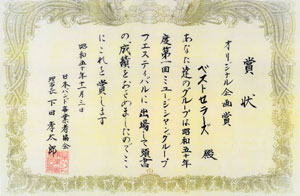 賞状
オリジナル企画賞
ベストセラーズ 殿
あなた達のグループは昭和五十年
度第一回ミュージシャングループ
フェスティバルに出場して頭書
の成績をおさめましたのでこゝ
にこれを賞します
昭和五十年十二月三日
日本バンド事業者協会
理事長 下田孝太郎